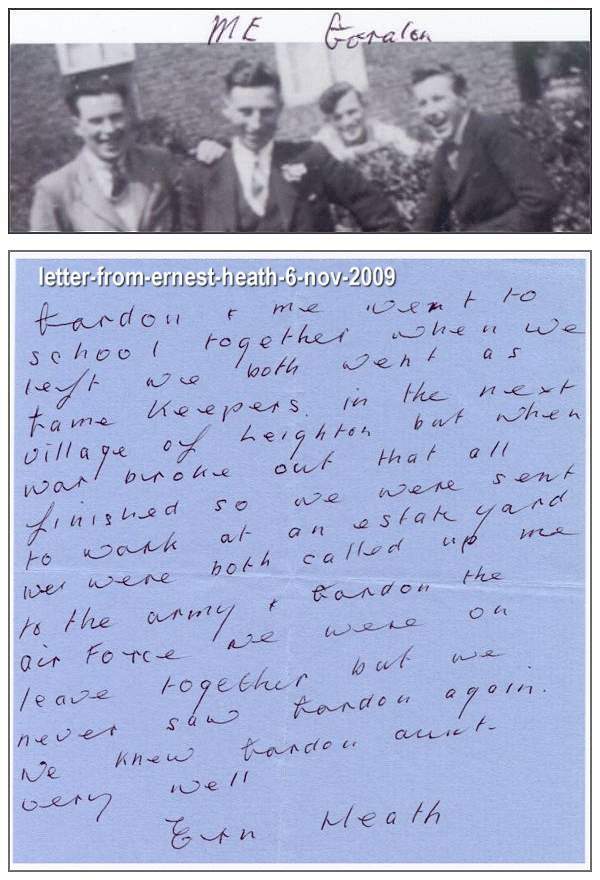 ME Gordon
letter-from-ernest-heath-6-nov-2009
Gordon + me went to
school together when we
left we both went as
Game Keepers. in the next
village of Leighton but when
war broke out that all
finished so we were sent
to work at an estate yard
we were both called up me
to the army + Gordon the
air Force we were on
leave together but we
never saw Gordon again.
We knew Gordon aunt
very well
Ern Heath